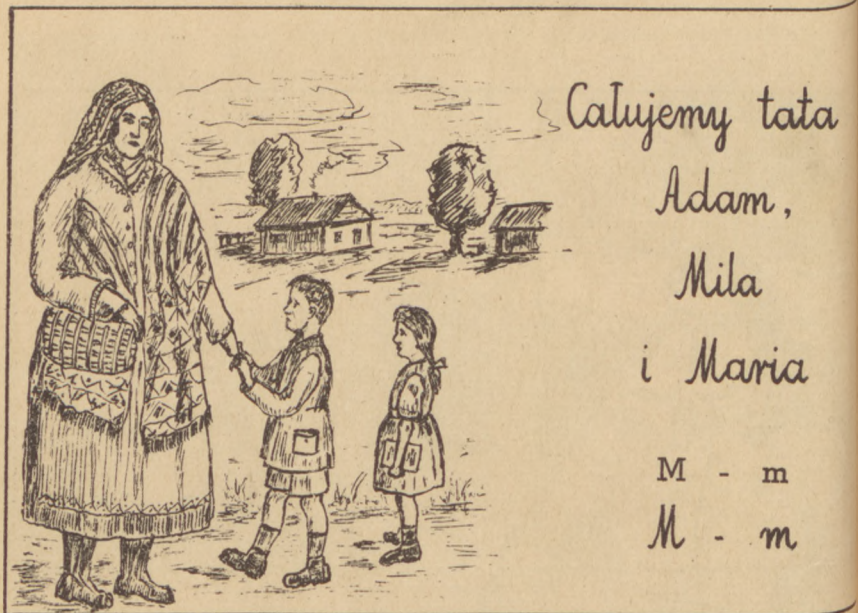 Całujemy tata
Adam,
Mila
i Maria
M - m
M - m